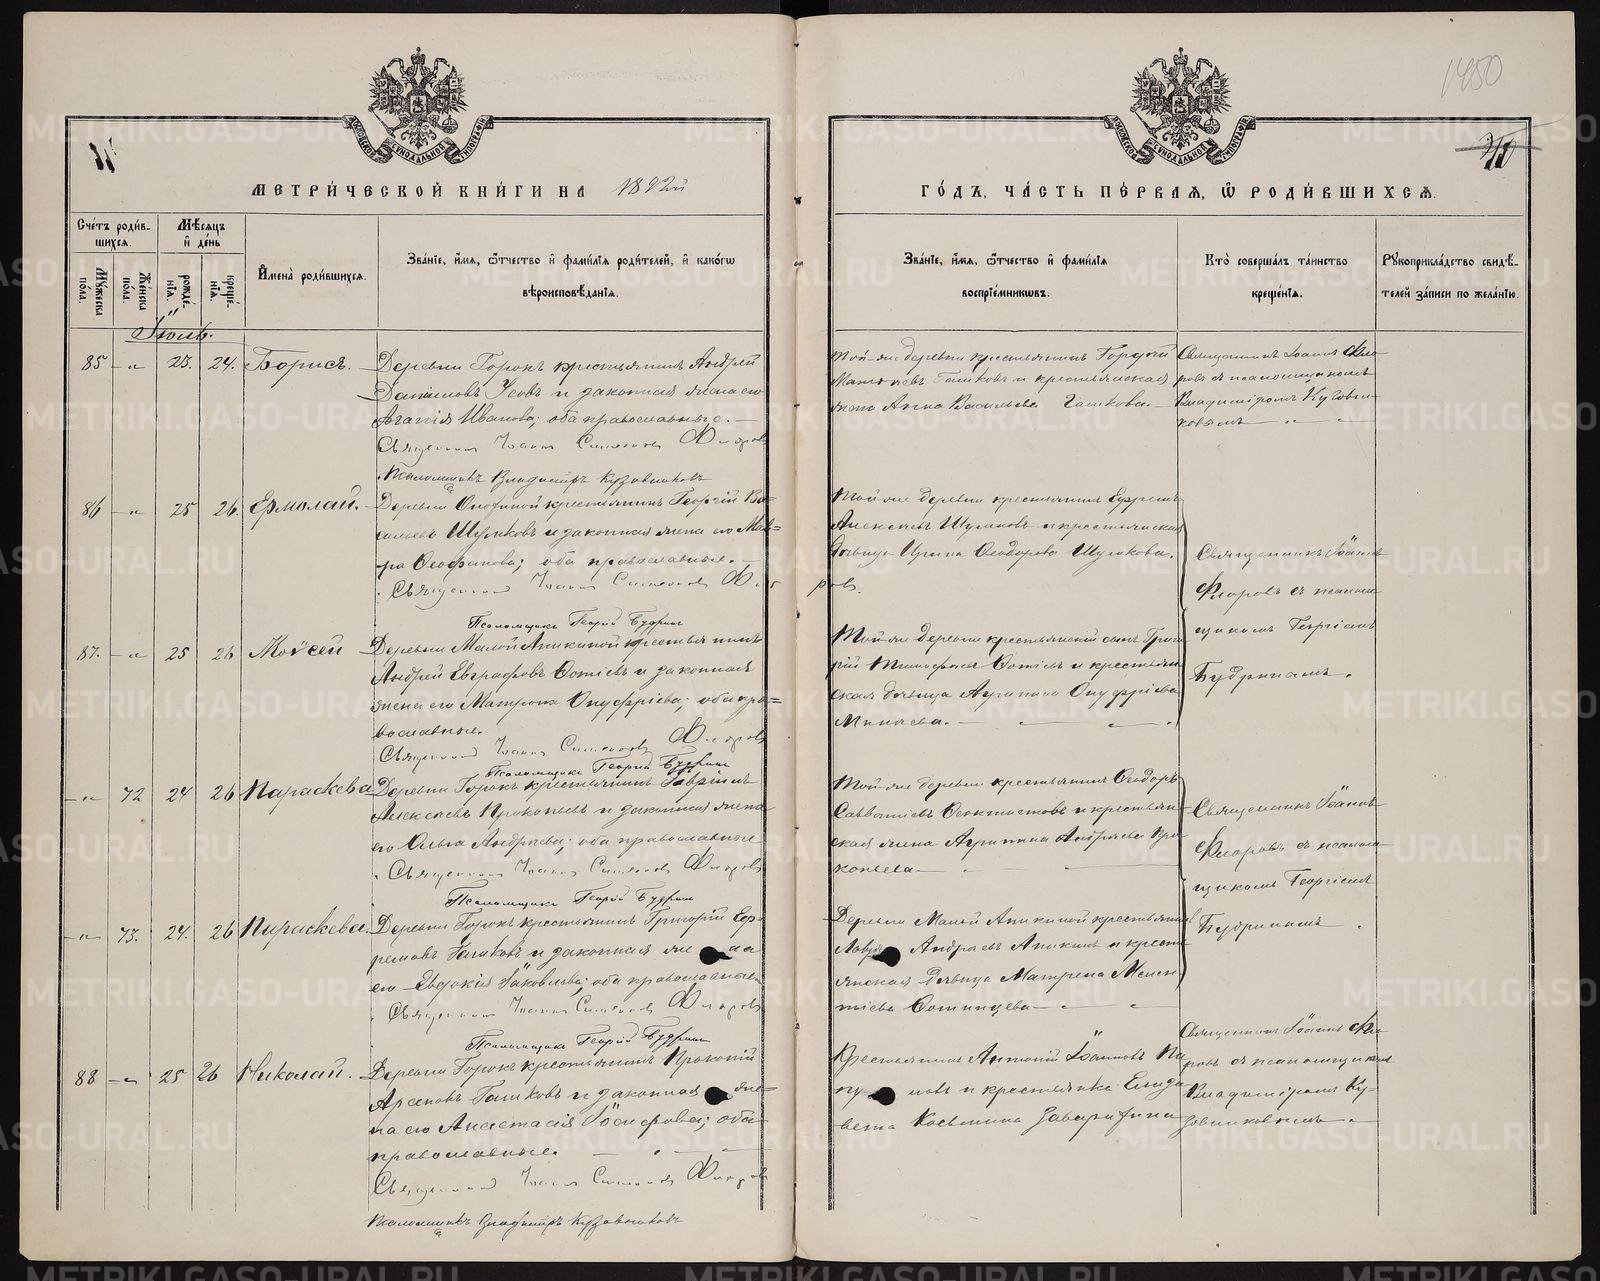 1450
МЕТРИ́ЧЕСКОЙ КНИ́ГИ НА 1892й
ГО́ДЪ, ЧА́СТЬ ПЕ́РВАЯ, Ѿ РОДИ́ВШИХСЯ.
Сче́тъ роди́в-
шихся.
Му́жеска по́ла.
Же́нска по́ла.
Мѣсяцъ и де́нь
рожде́-
нїя.
креще́-
нїя.
Имена̀ роди́вшихся.
Зва́нїе, и́мя, ѻ́тчество и фами́лїя роди́телей, и како́гѡ
вѣроисповѣ́данїя.
Зва́нїе, и́мя, ѻ́тчество и фами́лїя
воспрїе́мникѡвъ.
Кто̀ соверша́лъ та́инство
креще́нїя.
Рꙋкоприкла́дство свидѣ́-
телей за́писи по жела́нїю.
Іюль.
85 — „ 23. 24. Борисъ.
Деревни Горокъ крестьянинъ Андрей
Даниловъ Усовъ и законная жена его
Агапія Иванова; оба православные. —
Священник Иоанн Симеонов Флоров
Псаломщикъ Владиміръ Кузовниковъ
Той же деревни крестьянинъ Гордей
Матвѣевъ Гашковъ и крестьянская
жена Анна Васильева Гашкова. —
Священникъ Іоаннъ Фло-
ровъ съ псаломщикомъ
Владиміромъ Кузовни-
ковымъ —
86 — „ 25 26. Ермолай.
крестьянинъ Георгій Ва-
сильевъ Шумковъ и законная жена его Мав-
ра Ѳеофанова; оба православные. —
Священник Иоанн Симеонов Фло-
ров.
Псаломщикъ Георгій Будринъ
Той же деревни крестьянинъ Ефремъ
Алексѣевъ Шумковъ и крестьянская
дѣвица Ирина Ѳеодорова Шумкова.
Священникъ Іоаннъ
Флоровъ съ псалом-
щикомъ Георгіемъ
Будринымъ.
87. — „ 25 26 Моисей
Деревни Малой Аникиной крестьянинъ
Андрей Евграфовъ Ѳотіевъ и законная
жена его Матрона Онуфріева; оба пра-
вославные.
Священник Иоанн Симеонов Флоров
Псаломщикъ Георгій Будринъ
Той же деревни крестьянскій сынъ Григо-
рій Ѳотіевъ и крестьян-
ская дѣвица Агрипина Онуфріева
Минѣева. —
— „ 72 24 26 Параскева
Деревни Горокъ крестьянинъ Гавріилъ
Алексѣевъ Прокопьевъ и законная жена
его Ольга Андреева; оба православные
Священник Иоанн Симеонов Флоров
Псаломщикъ Георгій Будринъ
Той же деревни крестьянинъ Ѳеодоръ
Савватіевъ Ѳеоктистовъ и крестьян-
ская жена Агрипина Андреева Про-
копьева —
Священникъ Іоаннъ
Флоровъ съ псалом-
щикомъ Георгіемъ
Будринымъ.
— „ 73. 24. 26 Параскева.
Деревни Горокъ крестьянинъ Григорій Еф-
ремовъ Гашковъ и законная жена
его Евдокія Іаковлева; оба православные
Священник Иоанн Симеонов Флоров
Псаломщикъ Георгій Будринъ
Деревни Малой Аникиной крестьянинъ
Андреевъ Аникинъ и кресть-
янская дѣвица Матрена Мелен-
тіева
88 — „ 25 26 Николай.
Деревни Горокъ крестьянинъ Прокопій
Арсеновъ Гашковъ и законная же-
на его Анастасія Іосифова; оба
православные. —
Священник Иоанн Симеонов Флоров
Псаломщикъ Владиміръ Кузовниковъ
Крестьянинъ Антоній Іоанновъ
и крестьянка Елиза-
вета Косьмина
Священникъ Іоаннъ Фло-
ровъ съ псаломщикомъ
Владиміромъ Ку-
зовниковымъ
METRIKI.GASO-URAL.RU